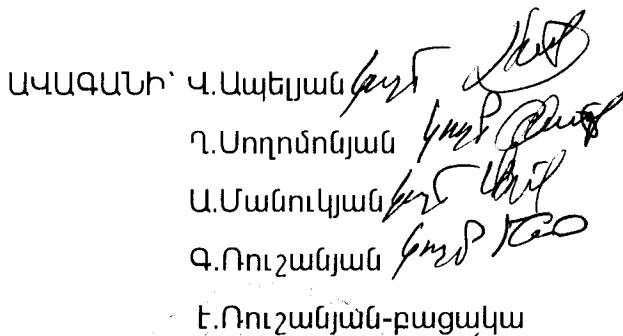 ԱՎԱԳԱՆԻ՝ Վ.Ապելյան կողմ
Ղ.Սողոմոնյան կողմ
Ա.Մանուկյան կողմ
Գ.Ռուշանյան կողմ
Է.Ռուշանյան-բացակա